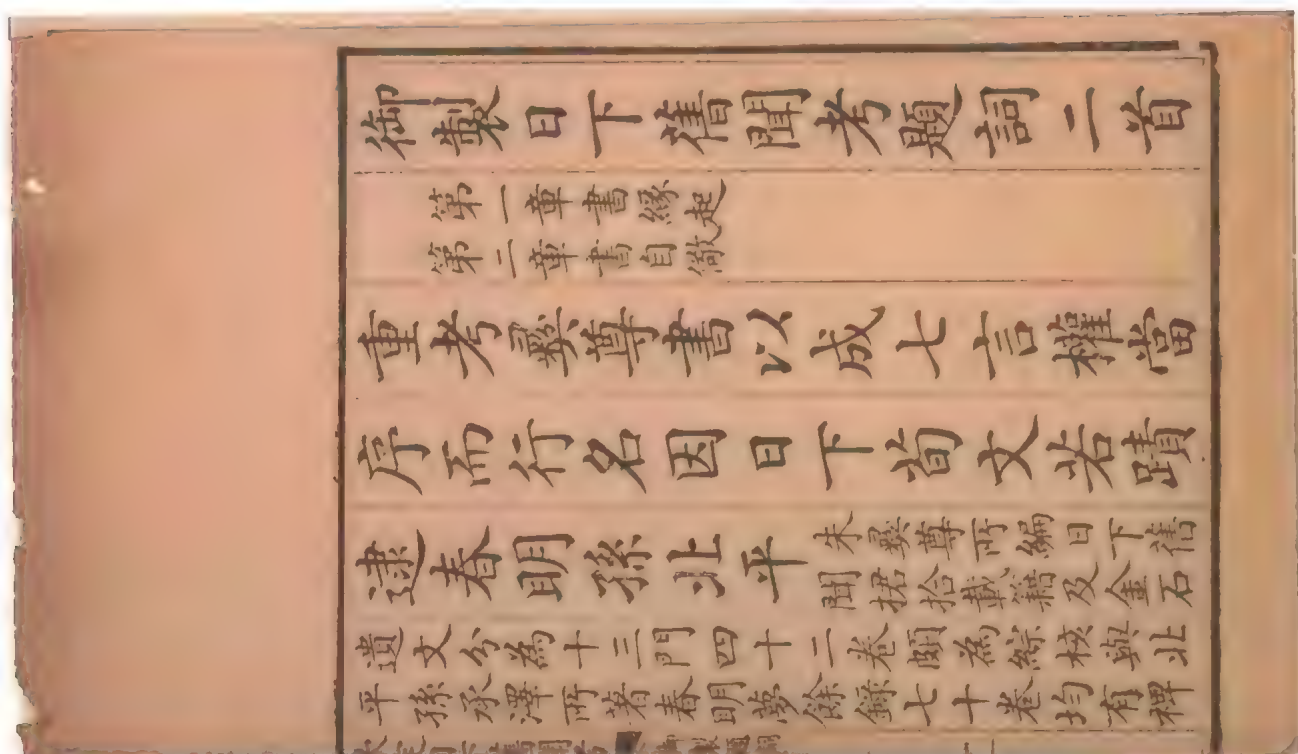 御製日下舊聞考題詞二首
第一章書緣起
第二章書自儆
重考彝尊書以成七言權當
序而行名因日下荀文若蹟
逮春明孫北平
朱彝尊所編日下舊
聞捃拾載籍及金石
遺文分為十三門四十二卷頗為綜核與北
平孫承澤所著春明夢餘錄七十卷均有裨